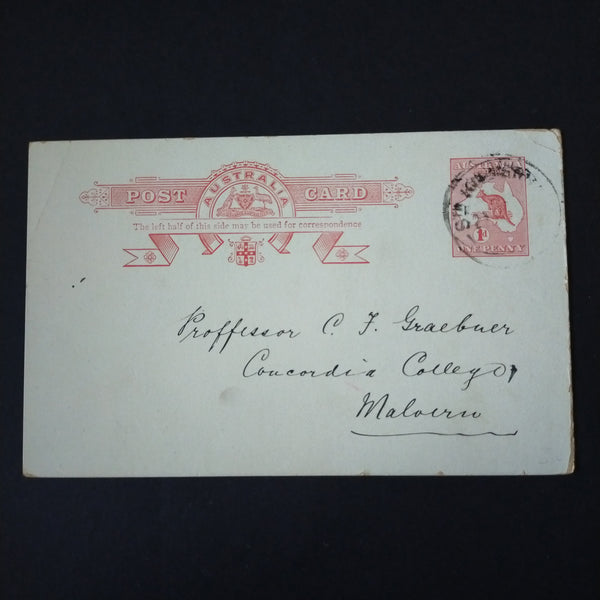 AUSTRALIA
POST CARD
The left half of this side may be used for correspondence
AUSTRALIA
1D
ONE PENNY
Proffessor C. F. Graebner
Concordia College,
Malvern